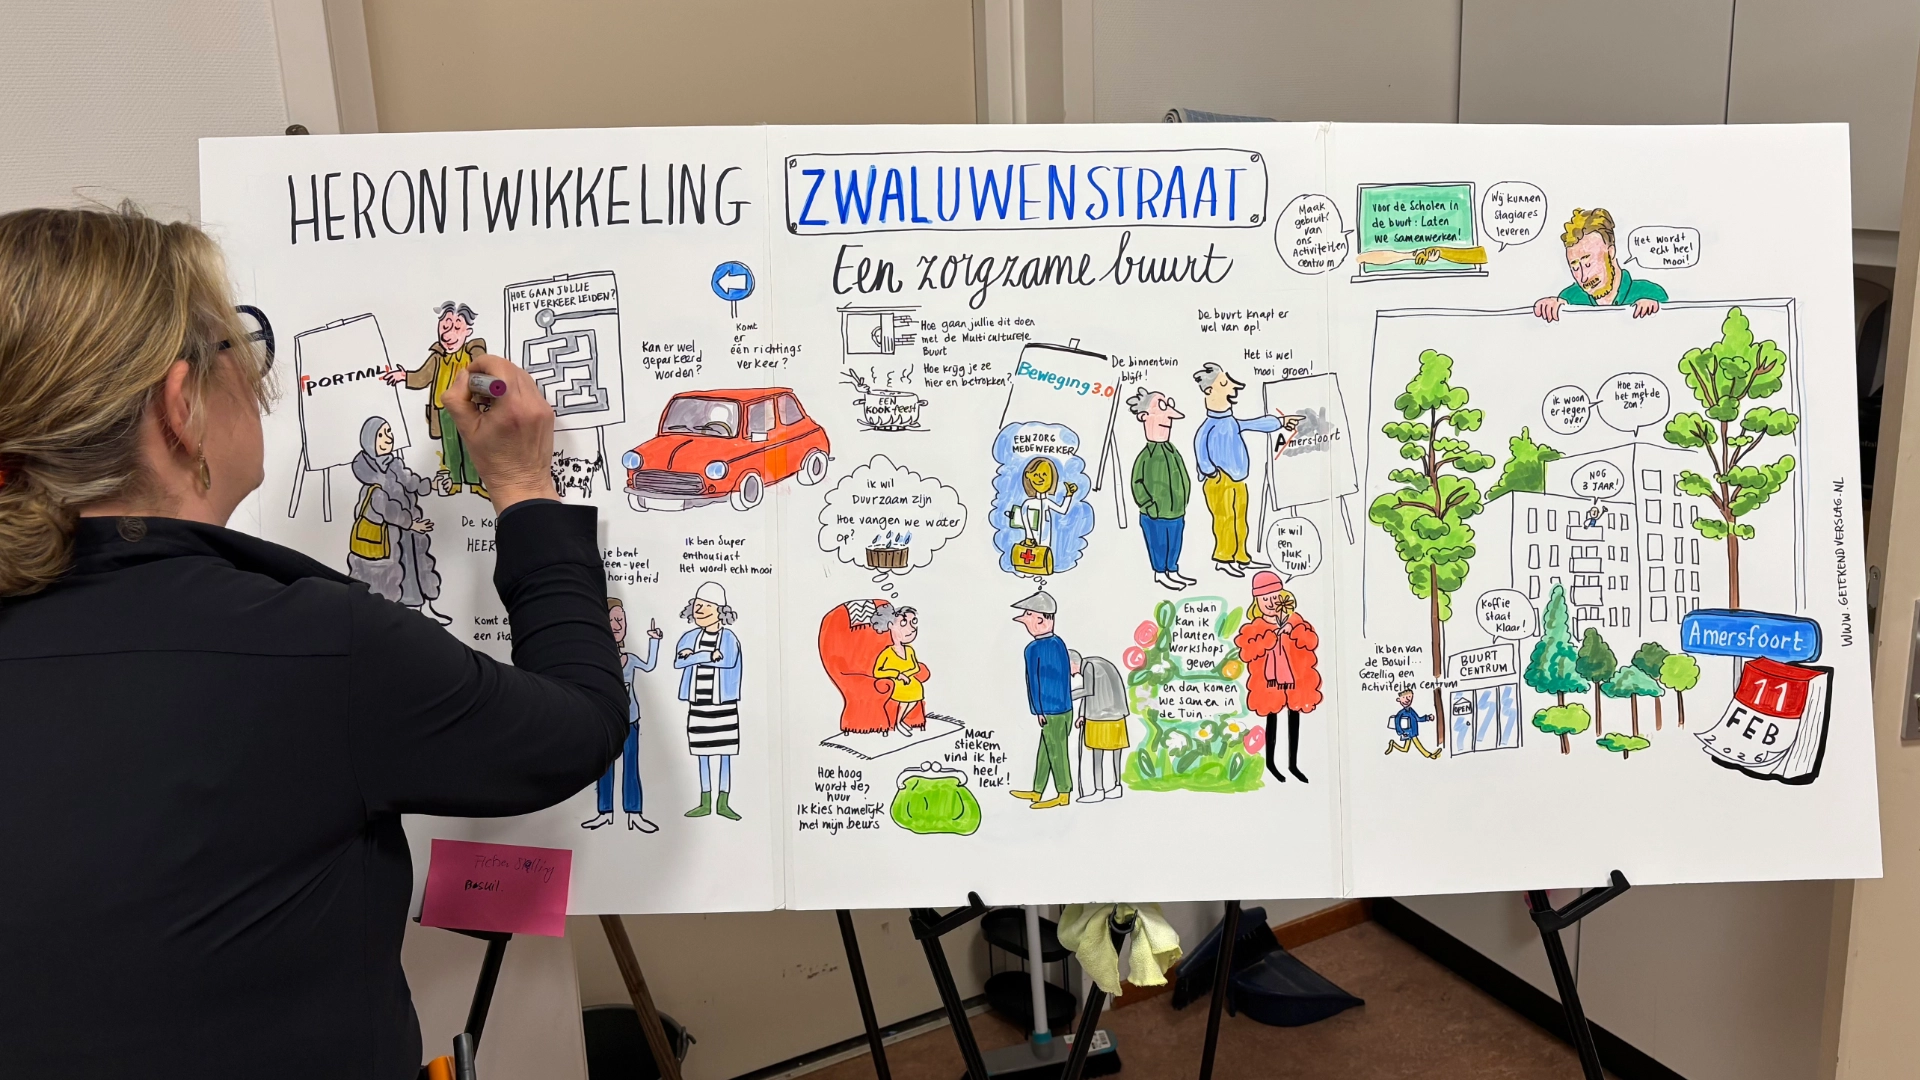 HERONTWIKKELING
ZWALUWENSTRAAT
Een zorgzame buurt
PORTAAL
HOE GAAN JULLIE
HET VERKEER LEIDEN?
Kan er wel
geparkeerd
worden?
Komt
er
één richtings
verkeer?
De
HEER
je bent
een-veel
horigheid
Ik ben super
enthousiast
Het wordt echt mooi
Komt e
een sta
Ficher Skilling
Bosuil.
Hoe gaan jullie dit doen
met de Multiculturele
Buurt
Hoe krijg je ze
hier en betrokken?
EEN
KOOKfeest
Beweging 3.0
De binnentuin
blijft!
De buurt knapt er
wel van op!
Het is wel
mooi groen!
Amersfoort
ik wil
Duurzaam zijn
Hoe vangen we water
op?
EEN ZORG
MEDEWERKER
ik wil
een
pluk
TUIN!
En dan
kan ik
planten
workshops
geven
en dan komen
we samen in
de Tuin..
Maar
stiekem
vind ik het
heel
leuk!
Hoe hoog
wordt de
huur?
Ik kies namelijk
met mijn beurs
Maak
gebruik
van
ons
Activiteiten
centrum
Voor de scholen in
de buurt: Laten
we samenwerken!
Wij kunnen
stagiares
leveren
Het wordt
echt heel
mooi!
ik woon
er tegen
over...
Hoe zit
het met de
zon?
NOG
3 JAAR!
Koffie
staat
klaar!
Ik ben van
de Bosuil...
Gezellig een
Activiteiten centrum
BUURT
CENTRUM
OPEN
Amersfoort
11
FEB
2026
WWW.GETEKENDVERSLAG.NL